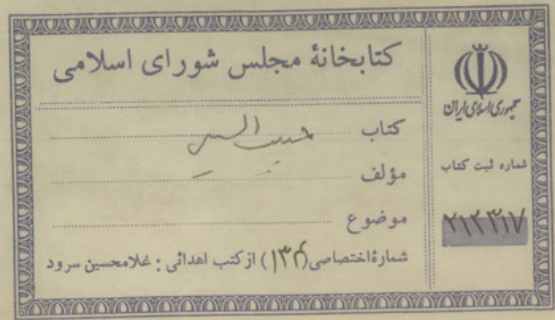 کتابخانهٔ مجلس شورای اسلامی
کتاب حبیب السیر
مؤلف
موضوع
شمارهٔ اختصاصی (۱۳۴) از کتب اهدائی : غلامحسین سرود
جمهوری اسلامی ایران
شماره ثبت کتاب
۲۱۴۳۱۷